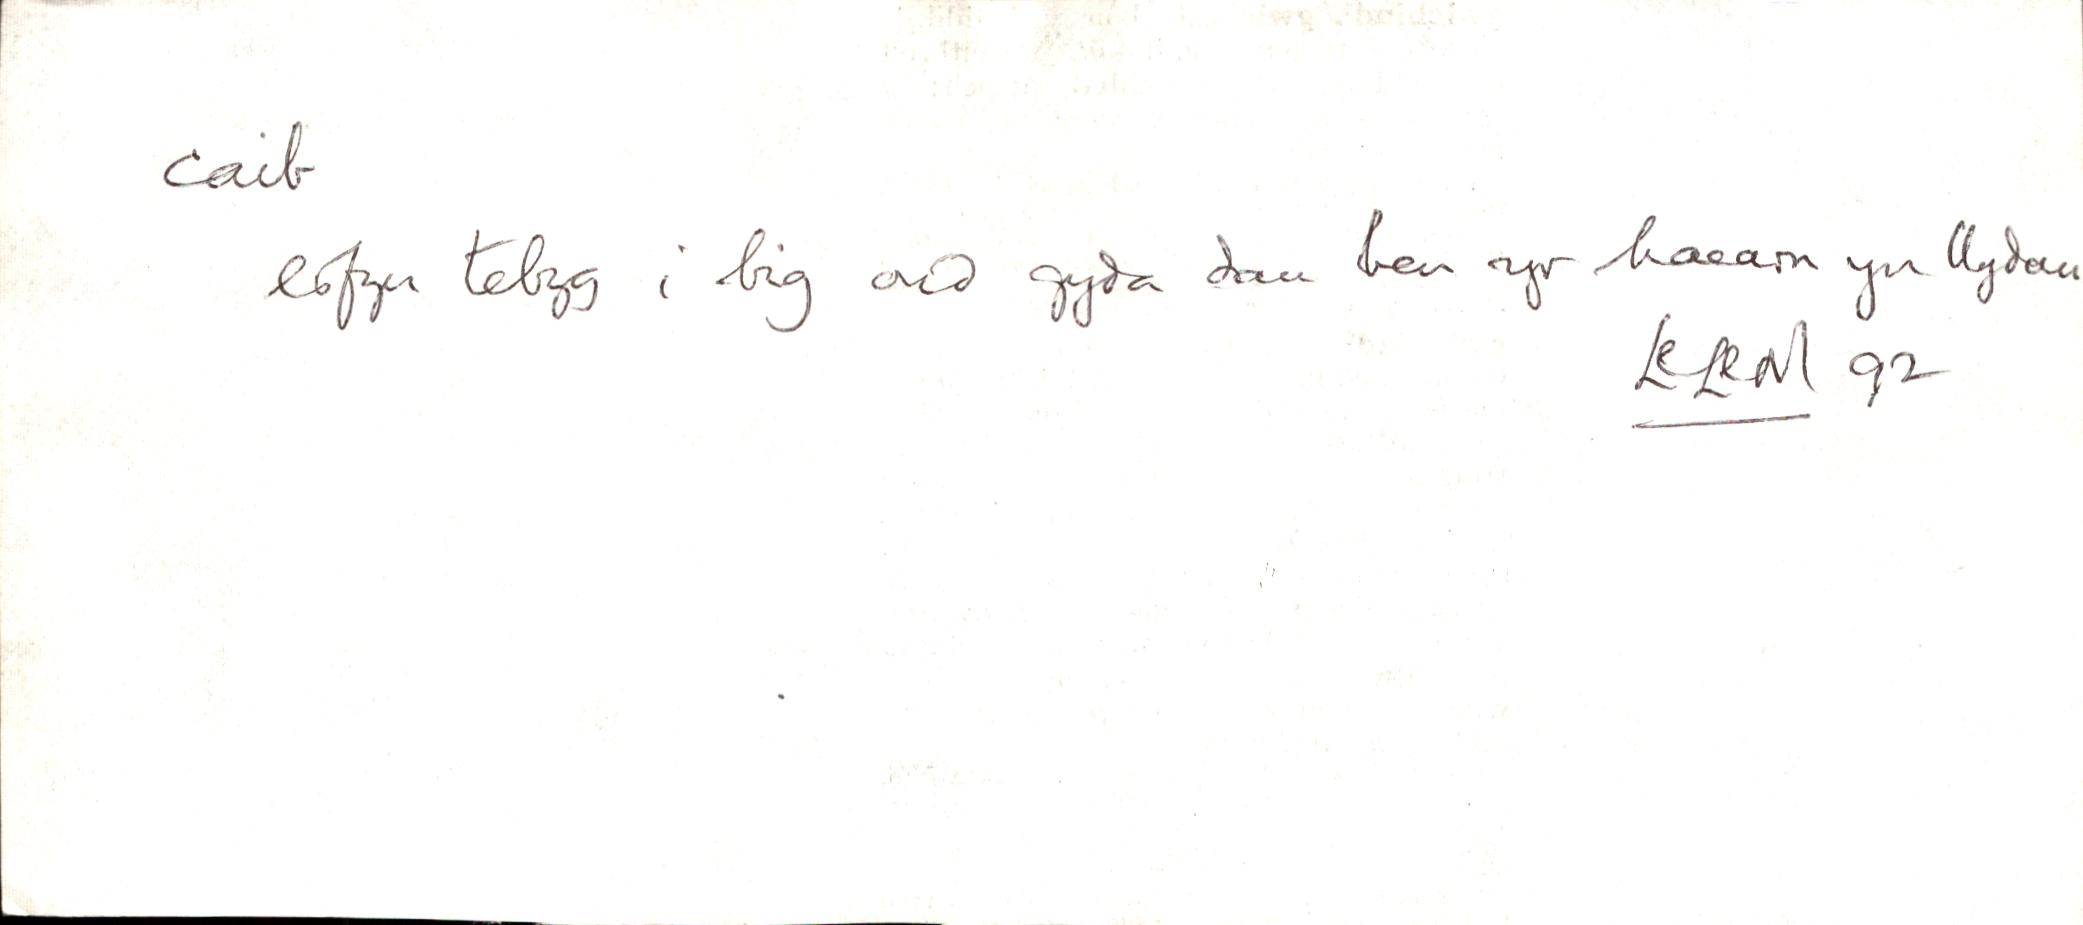 caib
erfyn tebyg i big ond gyda dau ben yr haearn yn llydan
LlLlM 92